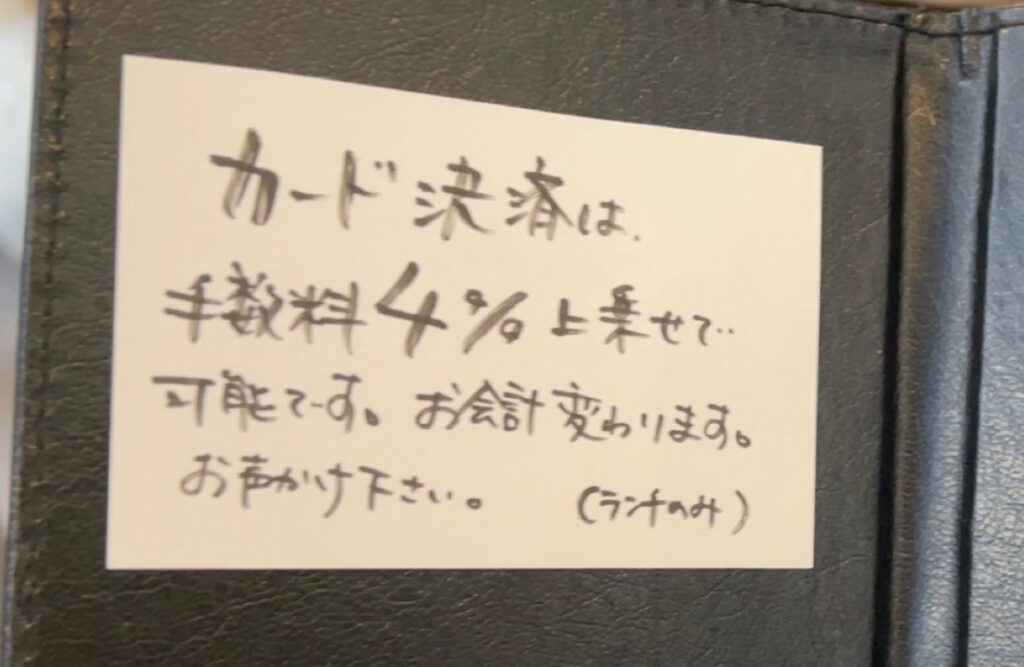 カード決済は、
手数料4%上乗せで
可能です。お会計変わります。
お声かけ下さい。 (ランチのみ)